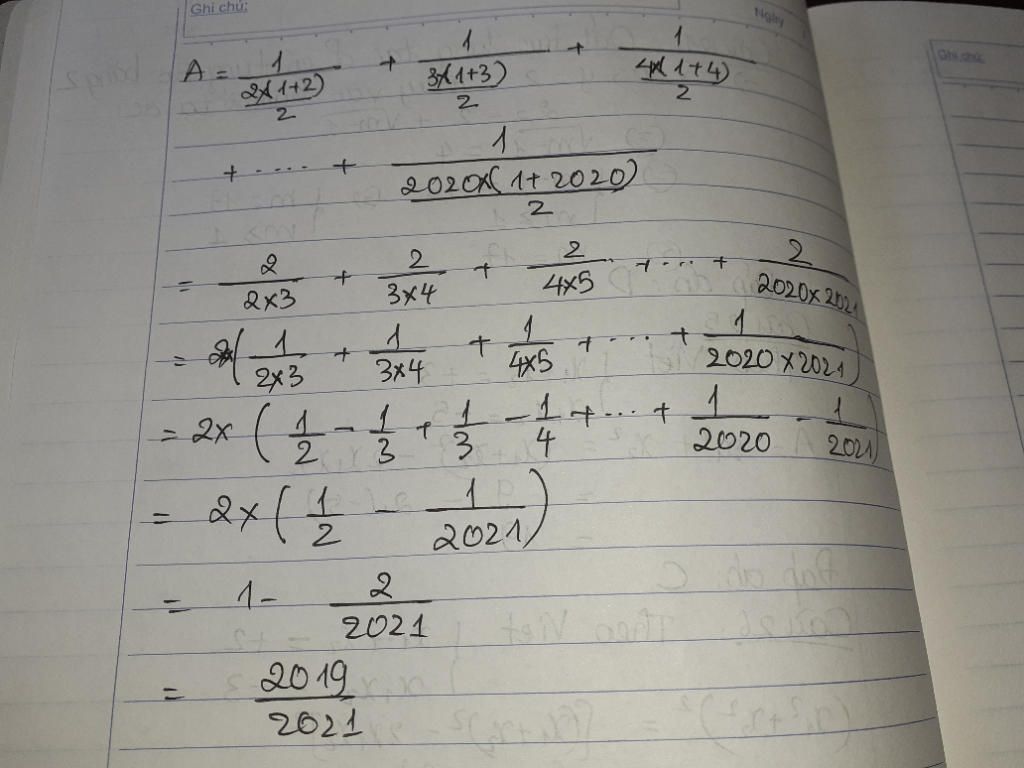 Ghi chú:
Ngày
Ghi chú:
A = 1/((2×(1+2))/2) + 1/((3×(1+3))/2) + 1/((4×(1+4))/2)
+ .... + 1/((2020×(1+2020))/2)
= 2/(2×3) + 2/(3×4) + 2/(4×5) + ... + 2/(2020×2021)
= 2×(1/(2×3) + 1/(3×4) + 1/(4×5) + ... + 1/(2020×2021))
= 2×(1/2 - 1/3 + 1/3 - 1/4 + ... + 1/2020 - 1/2021)
= 2×(1/2 - 1/2021)
= 1 - 2/2021
= 2019/2021